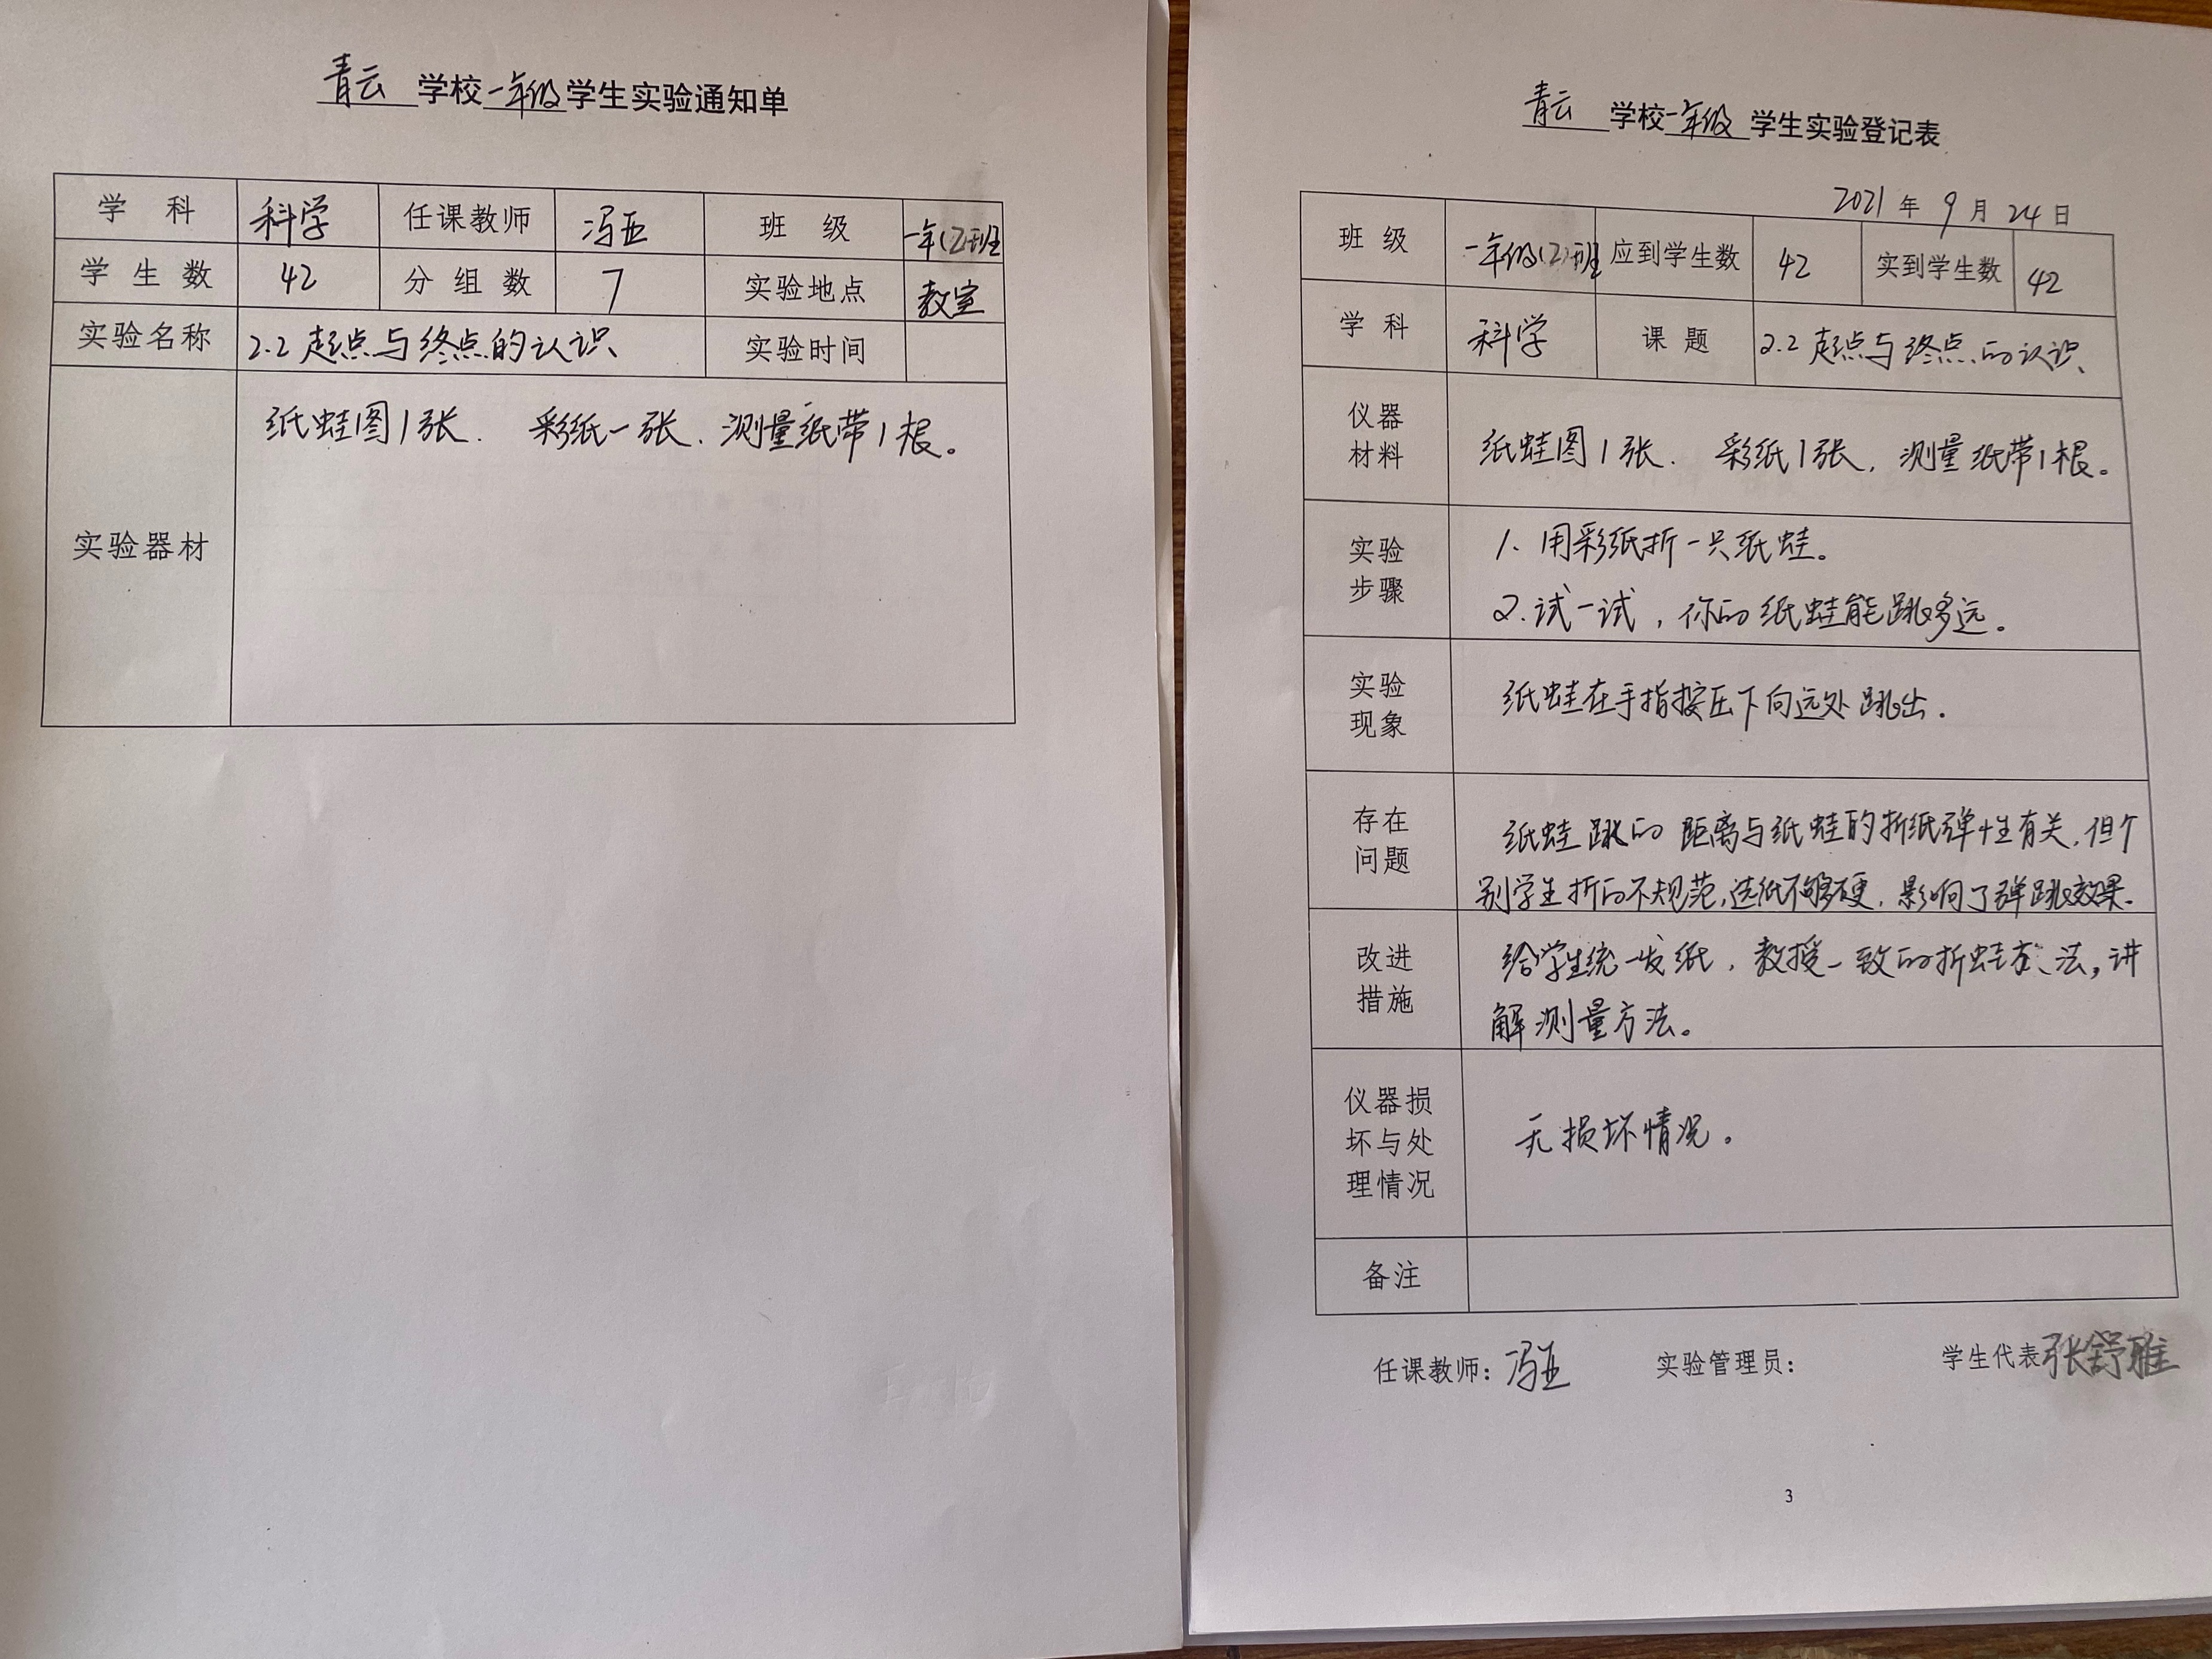 青云 学校一年级学生实验通知单
学 科 科学 任课教师 冯亚 班 级 一年(2)班
学 生 数 42 分 组 数 7 实验地点 教室
实验名称 2.2 起点与终点的认识 实验时间
实验器材 纸蛙图1张. 彩纸一张、测量纸带1根。
青云 学校一年级 学生实验登记表
2021 年 9 月 24 日
班 级 一年级(2)班 应到学生数 42 实到学生数 42
学 科 科学 课 题 2.2 起点与终点的认识
仪器
材料
纸蛙图1张. 彩纸1张, 测量纸带1根。
实验
步骤
1、用彩纸折一只纸蛙。
2.试一试,你的纸蛙能跳多远。
实验
现象
纸蛙在手指按压下向远处跳出.
存在
问题
纸蛙跳的距离与纸蛙的折纸弹性有关,但个
别学生折的不规范,选纸不够硬,影响了弹跳效果.
改进
措施
给学生统一发纸,教授一致的折蛙方法,讲
解测量方法。
仪器损
坏与处
理情况
无损坏情况。
备注
任课教师: 冯亚 实验管理员: 学生代表 张舒雅
3